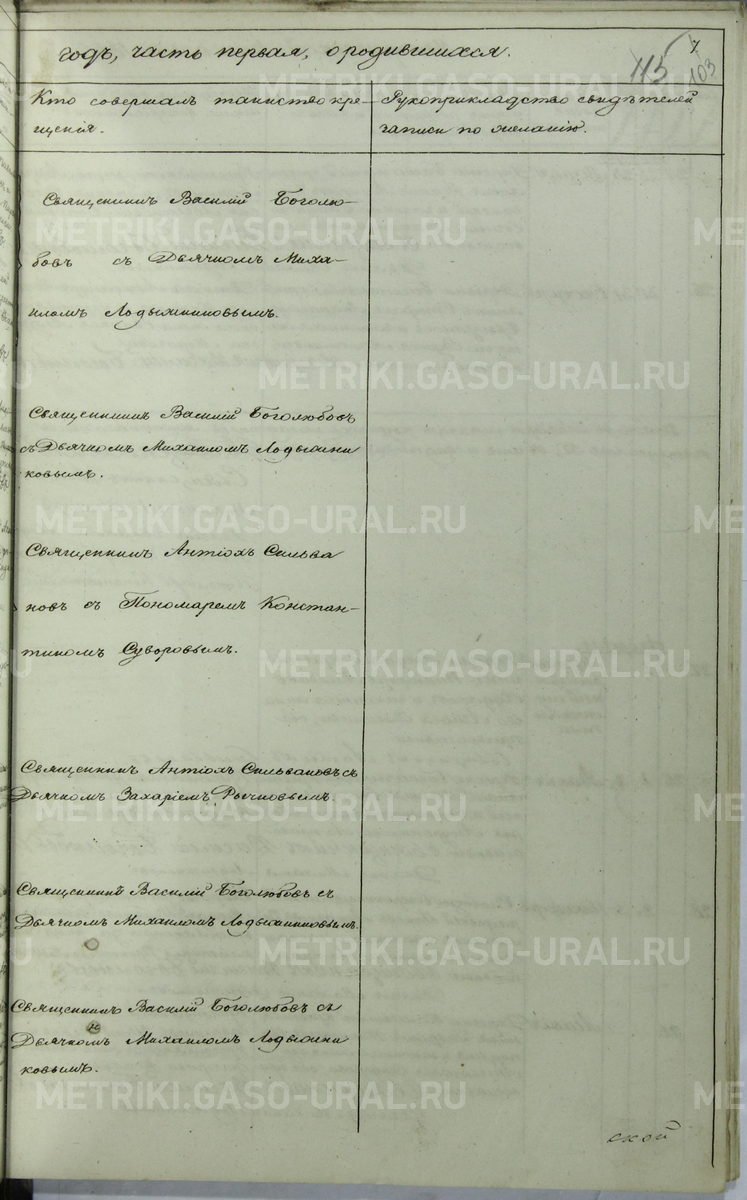 годъ, часть первая, о родившихся.
7
115
103
Кто совершалъ таинство кре-
щенія.
Рукоприкладство свидѣтелей
записи по желанію.
Священникъ Василій Боголю-
бовъ съ Дьячкомъ Миха-
иломъ Лодыжниковымъ.
Священникъ Василій Боголюбовъ
съ Дьячкомъ Михаиломъ Лодыжни
ковымъ.
Священникъ Антіохъ Сильва
новъ съ Пономаремъ Констан-
тиномъ Суворовымъ.
Священникъ Антіохъ Сильвановъ съ
Дьячкомъ Захаріемъ Рычковымъ.
Священникъ Василій Боголюбовъ съ
Дьячкомъ Михаиломъ Лодыжниковымъ.
Священникъ Василій Боголюбовъ съ
Дьячкомъ Михаиломъ Лодыжни
ковымъ.
ской
METRIKI.GASO-URAL.RU